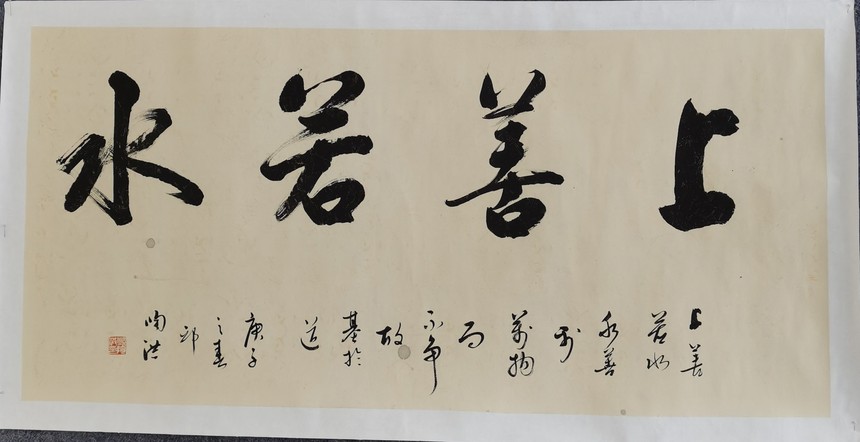 上善若水
上善
若水
水善
利
萬物
而
不争
故
基於
道
庚子
之春
洪